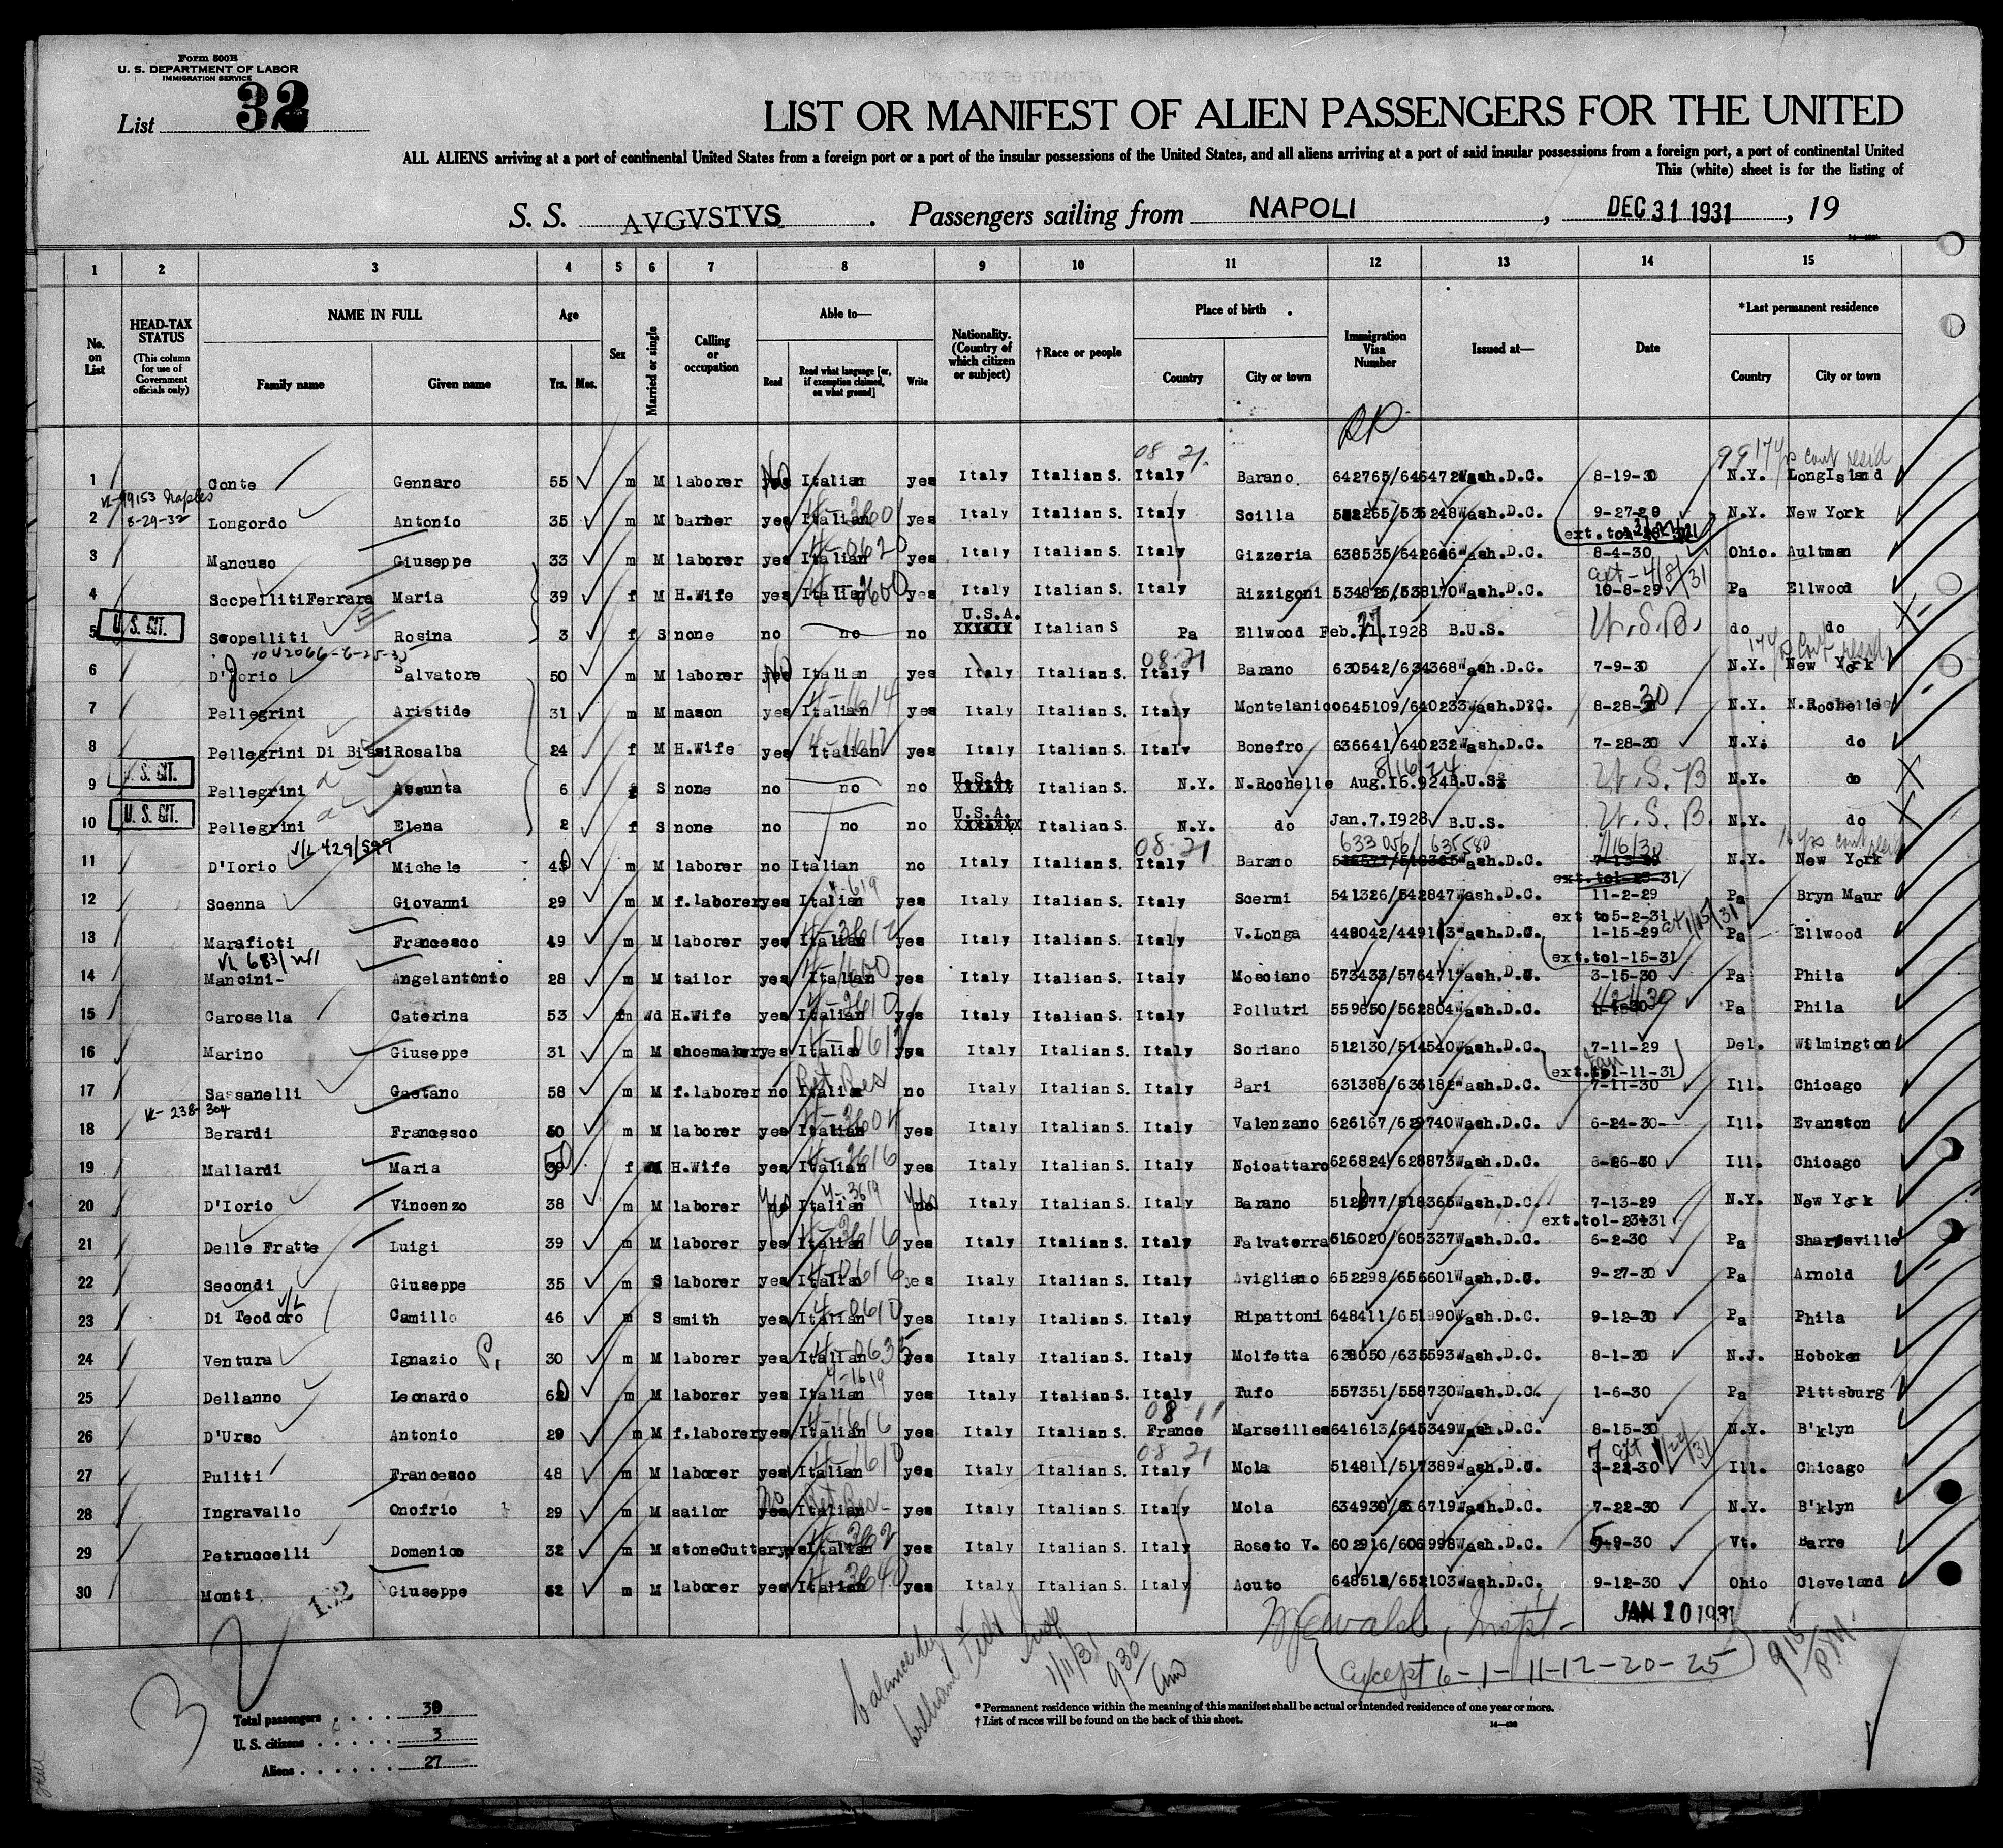 Form 500B
U. S. DEPARTMENT OF LABOR
IMMIGRATION SERVICE
List 32
LIST OR MANIFEST OF ALIEN PASSENGERS FOR THE UNITED
ALL ALIENS arriving at a port of continental United States from a foreign port or a port of the insular possessions of the United States, and all aliens arriving at a port of said insular possessions from a foreign port, a port of continental United
This (white) sheet is for the listing of
S. S. AVGVSTVS. Passengers sailing from NAPOLI, DEC 31 1931, 19
1 2 3 4 5 6 7 8 9 10 11 12 13 14 15
No. on List
HEAD-TAX STATUS (This column for use of Government officials only)
NAME IN FULL
Family name Given name
Age
Yrs. Mos.
Sex
Married or single
Calling or occupation
Able to—
Read Read what language [or, if exemption claimed, on what ground] Write
Nationality. (Country of which citizen or subject)
†Race or people
Place of birth
Country City or town
Immigration Visa Number
Issued at—
Date
*Last permanent residence
Country City or town
1 Conte Gennaro 55 m M laborer Italian yes Italy Italian S. Italy Barano 642765/646472 Wash.D.C. 8-19-30 N.Y. LongIsland
2 Longordo Antonio 35 m M barber yes Italian yes Italy Italian S. Italy Scilla Wash.D.C. 9-27-29 N.Y. New York
3 Mancuso Giuseppe 33 m M laborer yes Italian yes Italy Italian S. Italy Gizzeria Wash.D.C. 8-4-30 Ohio. Aultman
4 ScopellitiFerrara Maria 39 f M H.Wife yes Italian yes Italy Italian S. Italy Rizzigoni 534825/538170 Wash.D.C. 10-8-29 Pa Ellwood
U. S. CIT.
5 Scopelliti Rosina 3 f S none no no no U.S.A. Italian S Pa Ellwood Feb. 1928 B.U.S. U.S.B. do do
6 D'Jorio Salvatore 50 m M laborer Italian yes Italy Italian S. Italy Barano 630542/634368 Wash.D.C. 7-9-30 N.Y. New York
7 Pellegrini Aristide 31 m M mason yes Italian yes Italy Italian S. Italy Montelanico 645109/640233 Wash.D.C. 8-28-30 N.Y. N.Rochelle
8 Pellegrini Di Biasi Rosalba 24 f M H.Wife yes Italian yes Italy Italian S. Italy Bonefro 636641/640232 Wash.D.C. 7-28-30 N.Y. do
U. S. CIT.
9 Pellegrini Assunta 6 f S none no no no U.S.A. Italian S. N.Y. N.Rochelle Aug.15.924 B.U.S. 8/16/24 U.S.B N.Y. do
U. S. CIT.
10 Pellegrini Elena 2 f S none no no no U.S.A. Italian S. N.Y. do Jan.7.1928 B.U.S. U.S.B. N.Y. do
11 D'Iorio Michele m M laborer no Italian no Italy Italian S. Italy Barano 633056/635580 Wash.D.C. 7/16/30 N.Y. New York
12 Scenna Giovanni 29 m M f.laborer yes Italian yes Italy Italian S. Italy Scermi 541326/542847 Wash.D.C. 11-2-29 Pa Bryn Maur
ext to5-2-31
13 Marafioti Francesco 49 m M laborer yes Italian yes Italy Italian S. Italy V.Longa Wash.D.C. 1-15-29 Pa Ellwood
ext.to1-15-31
14 Mancini- Angelantonio 28 m M tailor yes Italian yes Italy Italian S. Italy Mosciano 573433/576471 Wash.D.C. 3-15-30 Pa Phila
15 Carosella Caterina 53 Wd H.Wife yes Italian yes Italy Italian S. Italy Pollutri 559650/562804 Wash.D.C. Pa Phila
16 Marino Giuseppe 31 m M shoemaker yes Italian yes Italy Italian S. Italy Soriano 512130/514540 Wash.D.C. 7-11-29 Del. Wilmington
17 Sassanelli Gaetano 58 m M f.laborer no Italian no Italy Italian S. Italy Bari 631388/636182 Wash.D.C. 7-11-30 Ill. Chicago
18 Berardi Francesco 50 m M laborer yes Italian yes Italy Italian S. Italy Valenzano 626167/629740 Wash.D.C. 6-24-30 Ill. Evanston
19 Mallardi Maria f H.Wife yes Italian yes Italy Italian S. Italy Noicattaro 626824/628873 Wash.D.C. 6-26-30 Ill. Chicago
20 D'Iorio Vincenzo 38 m M laborer Italian Italy Italian S. Italy Barano Wash.D.C. 7-13-29 N.Y. New York
21 Delle Fratte Luigi 39 m M laborer yes Italian yes Italy Italian S. Italy Falvaterra Wash.D.C. 6-2-30 Pa Sharpeville
22 Secondi Giuseppe 35 m S laborer yes Italian yes Italy Italian S. Italy Avigliano 652298/656601 Wash.D.C. 9-27-30 Pa Arnold
23 Di Teodoro Camillo 46 m S smith yes Italian yes Italy Italian S. Italy Ripattoni Wash.D.C. 9-12-30 Pa Phila
24 Ventura Ignazio P. 30 m M laborer yes Italian yes Italy Italian S. Italy Molfetta Wash.D.C. 8-1-30 N.J. Hoboken
25 Dellanno Leonardo m M laborer yes Italian yes Italy Italian S. Italy Tufo 557351/558730 Wash.D.C. 1-6-30 Pa Pittsburg
26 D'Urso Antonio 29 m M f.laborer yes Italian yes Italy Italian S. France Marseilles 641613/645349 Wash.D.C. 8-15-30 N.Y. B'klyn
27 Puliti Francesco 48 m M laborer yes Italian yes Italy Italian S. Italy Mola 514811/517389 Wash.D.C. Ill. Chicago
28 Ingravallo Onofrio 29 m M sailor Italian yes Italy Italian S. Italy Mola Wash.D.C. 7-22-30 N.Y. B'klyn
29 Petruccelli Domenico 32 m M stoneCutter yes Italian yes Italy Italian S. Italy Roseto V. 602916/606998 Wash.D.C. Vt. Barre
30 Monti Giuseppe 52 m M laborer yes Italian yes Italy Italian S. Italy Acuto 648512/652103 Wash.D.C. 9-12-30 Ohio Cleveland
JAN 10 1931
except 6-1-11-12-20-25
32
1/11/31 930 am
915 P.M.
Total passengers 30
U. S. citizens 3
Aliens 27
* Permanent residence within the meaning of this manifest shall be actual or intended residence of one year or more.
† List of races will be found on the back of this sheet.